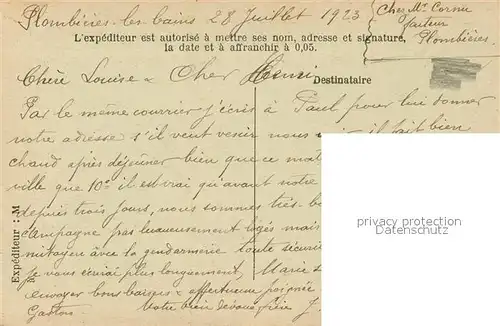 Plombières-les-bains 28 Juillet 1923
Chez Mr Cornu
facteur
Plombières
L'expéditeur est autorisé à mettre ses nom, adresse et signature,
la date et à affranchir à 0,05.
Chère Louise & Cher Henri
Destinataire
Par le même courrier j'écris à Paul pour lui donner
notre adresse s'il veut venir nous voir - il fait bien
chaud après déjeuner bien que ce mat
ville que 10° il est vrai qu'avant notre
depuis trois jours, nous sommes très-b
campagne pas luxueusement logés mais
mitoyen avec la gendarmerie toute sécuri
je vous écrirai plus longuement, Marie
envoyer bons baisers & affectueuse poignée
Gaston
Votre bien dévoué frère J.
Expéditeur : M
privacy protection
Datenschutz